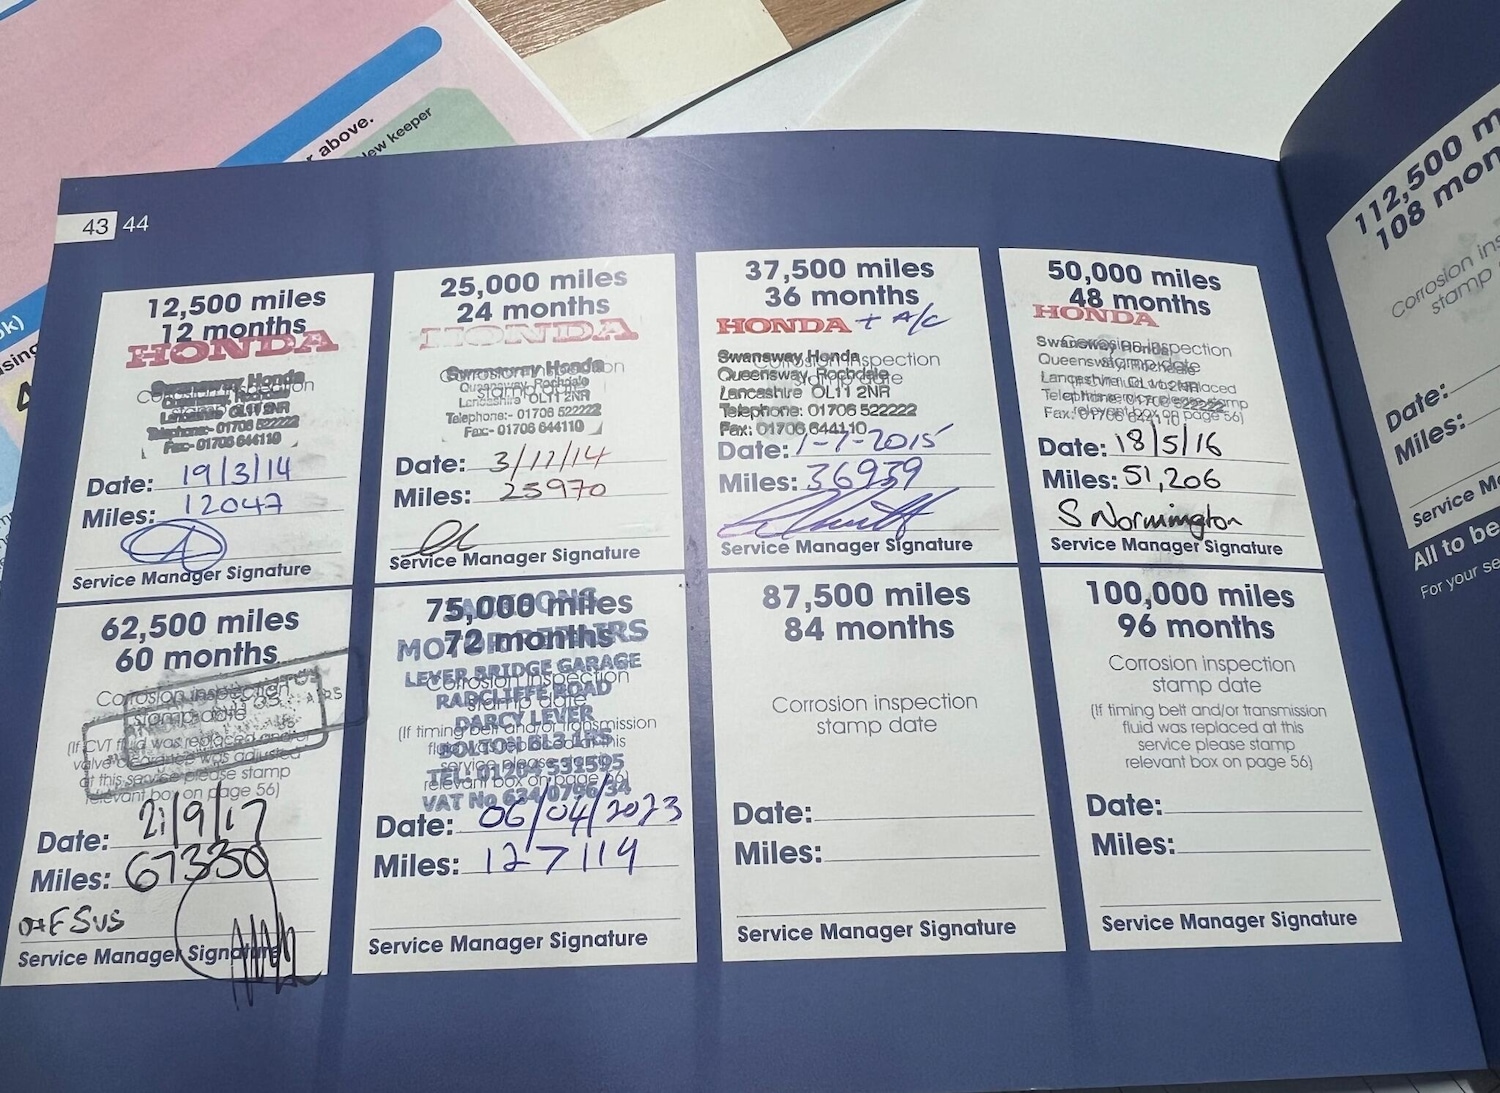 r above.
ew keeper
k)
sing
43 44
12,500 miles
12 months
HONDA
Swansway Honda
Queensway, Rochdale
Lancashire OL11 2NR
Telephone:- 01706 522222
Fax:- 01706 644110
Date: 19/3/14
Miles: 12047
Service Manager Signature
25,000 miles
24 months
HONDA
Swansway Honda
Queensway, Rochdale
Lancashire OL11 2NR
Telephone:- 01706 522222
Fax:- 01706 644110
Date: 3/11/14
Miles: 25970
Service Manager Signature
37,500 miles
36 months
HONDA + A/C
Swansway Honda
Corrosion inspection
stamp date
Queensway, Rochdale
Lancashire OL11 2NR
Telephone: 01706 522222
Fax: 01706 644110
Date: 1-7-2015
Miles: 36939
Service Manager Signature
50,000 miles
48 months
HONDA
Swansway Honda
Corrosion inspection
stamp date
Queensway, Rochdale
Lancashire OL11 2NR
Telephone: 01706 522222
Fax: 01706 644110
relevant box on page 56)
Date: 18/5/16
Miles: 51,206
S Normington
Service Manager Signature
62,500 miles
60 months
Corrosion inspection
stamp date
(If CVT fluid was replaced and/or
valve clearance was adjusted
at this service please stamp
relevant box on page 56)
Date: 21/9/17
Miles: 67330
Service Manager Signature
75,000 miles
72 months
MOTOR REPAIRS
LEVER BRIDGE GARAGE
Corrosion inspection
RADCLIFFE ROAD
stamp date
DARCY LEVER
(If timing belt and/or transmission
fluid was replaced at this
BOLTON BL3 1RS
service please stamp
TEL: 01204 531595
relevant box on page 56)
VAT No 634 0796 34
Date: 06/04/2023
Miles: 127119
Service Manager Signature
87,500 miles
84 months
Corrosion inspection
stamp date
Date:
Miles:
Service Manager Signature
100,000 miles
96 months
Corrosion inspection
stamp date
(If timing belt and/or transmission
fluid was replaced at this
service please stamp
relevant box on page 56)
Date:
Miles:
Service Manager Signature
112,500 m
108 mon
Corrosion ins
stamp
Date:
Miles:
Service M
All to be
For your se